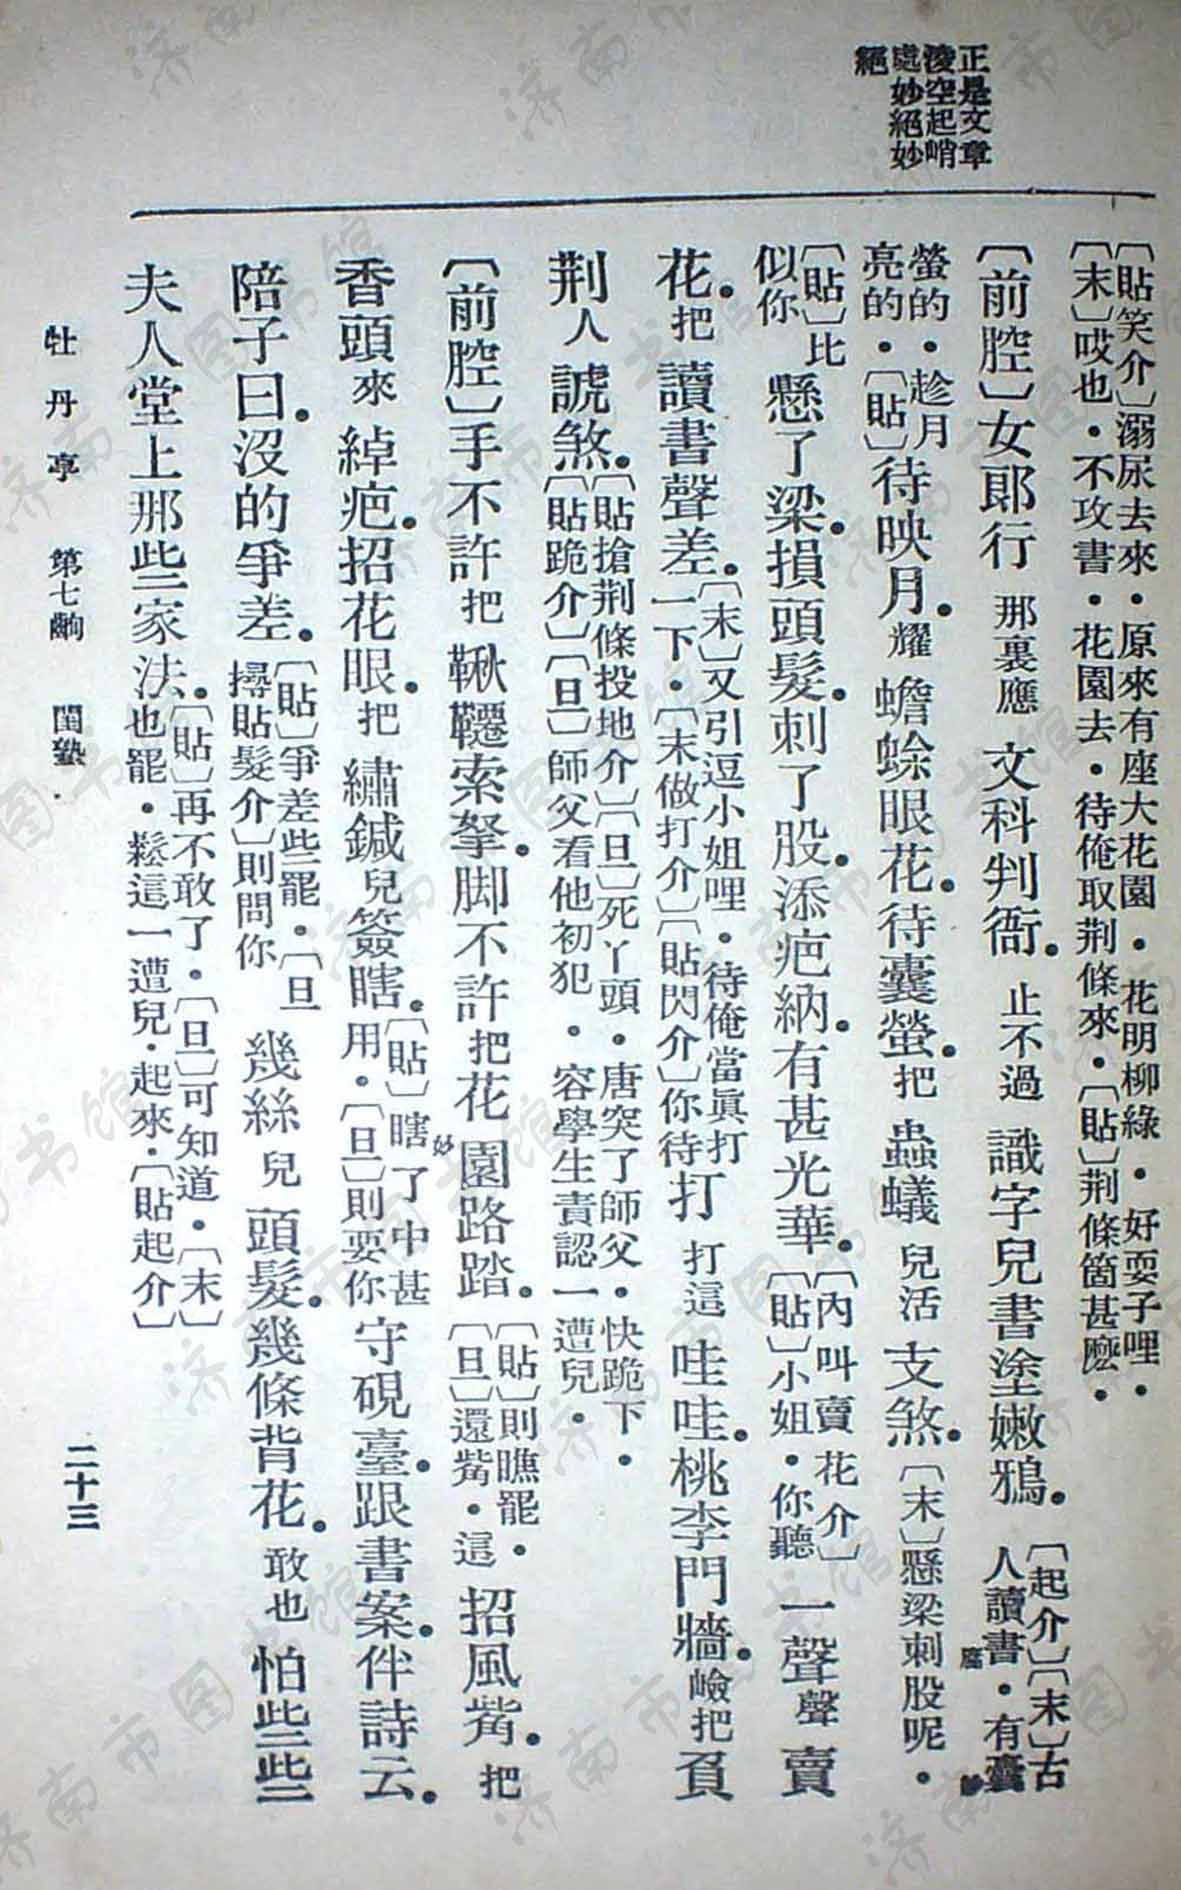 正是文章
淩空起峭
處妙絕妙
絕
〔貼笑介〕溺尿去來・原來有座大花園・花明柳綠・好耍子哩・
〔末〕哎也・不攻書・花園去・待俺取荆條來・〔貼〕荆條箇甚麽・
〔前腔〕女郞行那裏應文科判衙。止不過識字兒書塗嫩鴉。〔起介〕〔末〕古人讀書・有囊
腐
妙
螢的・趁月亮的・〔貼〕待映月。耀蟾蜍眼花。待囊螢。把蟲蟻兒活支煞。〔末〕懸梁刺股呢・
〔貼〕比似你懸了梁。損頭髮。刺了股。添疤納。有甚光華。〔內叫賣花介〕〔貼〕小姐・你聽一聲聲賣
花。把讀書聲差。〔末〕又引逗小姐哩・待俺當眞打一下・〔末做打介〕〔貼閃介〕你待打打這哇哇。桃李門牆。嶮把負
荆人諕煞。〔貼搶荆條投地介〕〔旦〕死丫頭・唐突了師父・快跪下・〔貼跪介〕〔旦〕師父看他初犯・容學生責認一遭兒・
〔前腔〕手不許把鞦韆索拏。脚不許把花園路踏。〔貼〕則瞧罷・〔旦〕還觜・這招風觜。把
妙
香頭來綽疤。招花眼。把繡鍼兒簽瞎。〔貼〕瞎了中甚用・〔旦〕則要你守硯臺。跟書案。伴詩云。
陪子曰。沒的爭差。〔貼〕爭差些罷・〔旦撏貼髮介〕則問你幾絲兒頭髮。幾條背花。敢也怕些些
夫人堂上那些家法。〔貼〕再不敢了・〔旦〕可知道・〔末〕也罷・鬆這一遭兒・起來・〔貼起介〕
牡丹亭 第七齣 閨塾 二十三
济南市图书馆